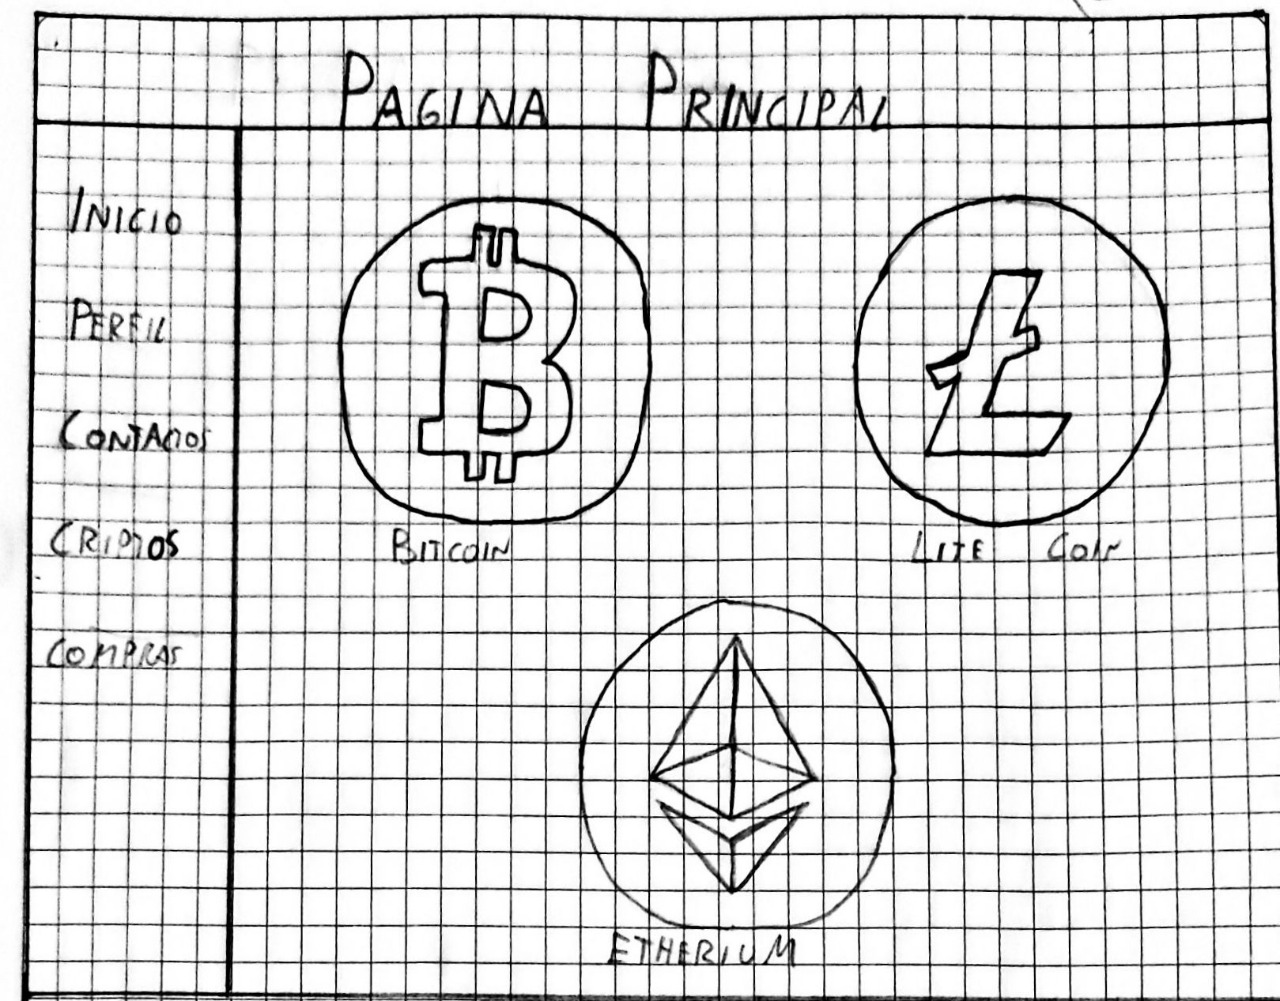 PAGINA PRINCIPAL
INICIO
PERFIL
CONTACTOS
CRIPTOS
COMPRAS
BITCOIN
LITE COIN
ETHERIUM